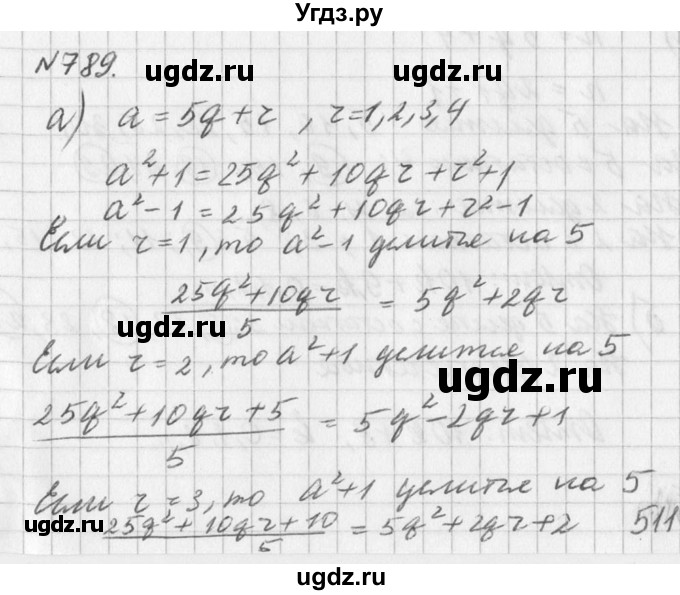 Угдз.ру
№789.
ugdz.ru ugdz.ru
а) a = 5q + r , r = 1, 2, 3, 4
a² + 1 = 25q² + 10qr + r² + 1
a² - 1 = 25q² + 10qr + r² - 1
Если r = 1, то a² - 1 делится на 5
ugdz.ru ugdz.ru
25q² + 10qr / 5 = 5q² + 2qr
ugdz.ru
Если r = 2, то a² + 1 делится на 5
ugdz.ru
25q² + 10qr + 5 / 5 = 5q² - 2qr + 1
Если r = 3, то a² + 1 делится на 5
25q² + 10qr + 10 / 5 = 5q² + 2qr + 2 511
ugdz.ru ugdz.ru
ugdz.ru